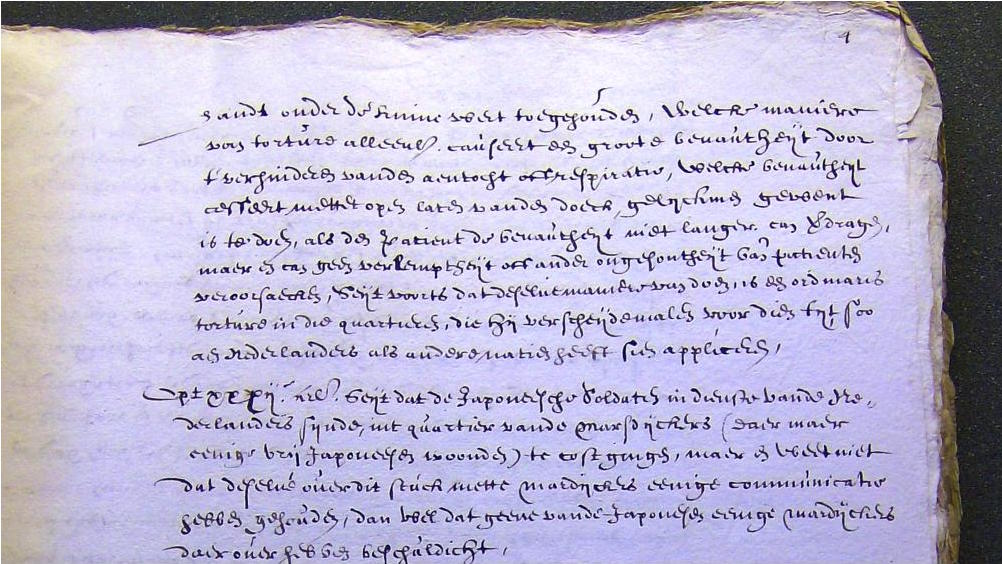 4
handt onder de kinne wert toegehouden, welcke maniere
van torture alleenl. causeert een groote benautheijt door
t'verhinderen vanden aentocht oft respiratie, welcke benautheijt
cesseert mettet open laten vanden doeck, gelijckmen gewent
is te doen, als den patient de benautheijt niet langer can v'dragen,
maer en can geen verlemptheijt oft ander ongesontheijt vanden patienten
veroorsaecken, Seijt voorts dat deselve maniere van doen, is een ordinaris
torture in die quartieren, die hij verscheijdemalen voor dien tijt, soo
aen Nederlanders als andere natien heeft sien appliceren,
Opt xxxij.e Art. Seijt dat de Japonesche Soldaten in dienste vande Ne„
derlanders sijnde, int quartier vande Mardijckers (daer maer
eenige vrij Japonesen woonden) te cost gingen, maer en weet niet
dat deselve over dit stuck, mette Mardijckers eenige communicatie
hebben gehouden, dan wel dat geene vande Japonesen eenige Mardijckers
daer over hebben beschuldicht,